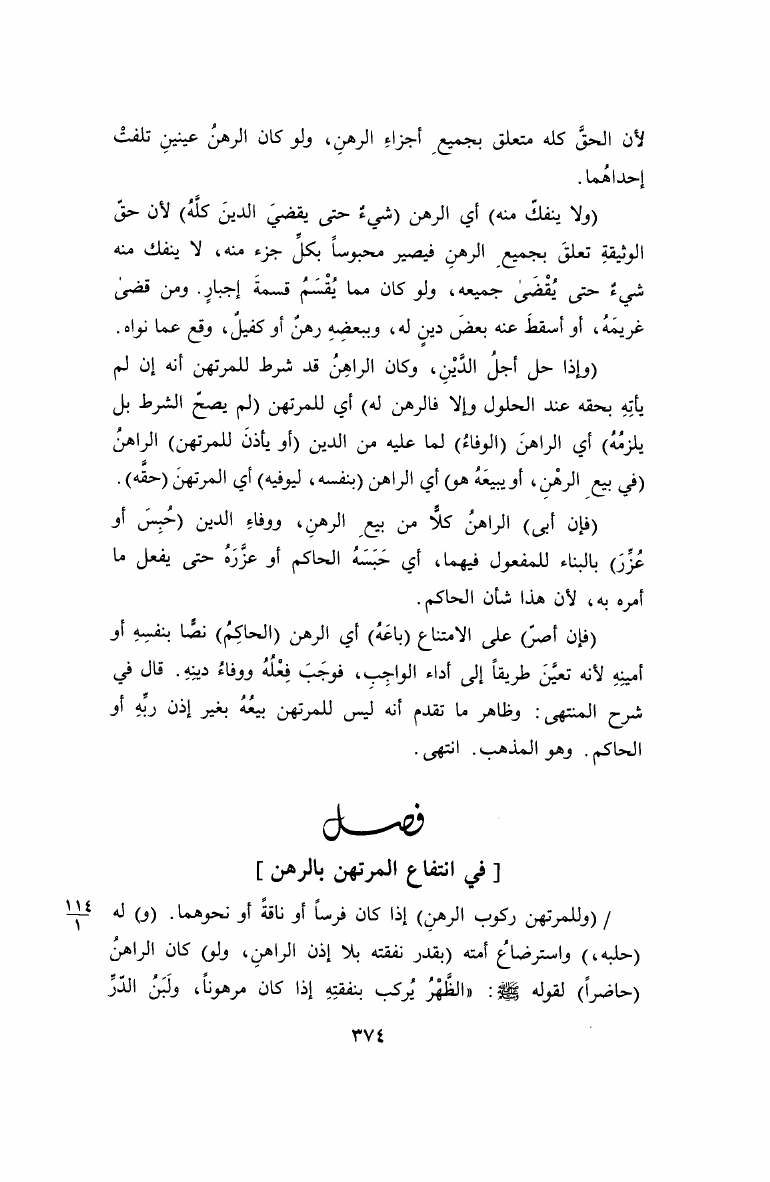 لأن الحقَّ كله متعلق بجميعِ أجزاءِ الرهنِ، ولو كان الرهنُ عينينِ تلفتْ
إحداهُما.
(ولا ينفكّ منه) أي الرهن (شيءٌ حتى يقضيَ الدينَ كلَّهُ) لأن حقّ
الوثيقةِ تعلقَ بجميعِ الرهنِ فيصير محبوساً بكلِّ جزء منه، لا ينفك منه
شيءٌ حتى يُقْضَىٰ جميعه، ولو كان مما يُقْسَمُ قسمةَ إجبارٍ. ومن قضىٰ
غريمَهُ، أو أسقطَ عنه بعضَ دينٍ له، وببعضِهِ رهنٌ أو كفيلٌ، وقع عما نواه.
(وإذا حل أجلُ الدَّيْنِ، وكان الراهِنُ قد شرط للمرتهن أنه إن لم
يأتِهِ بحقه عند الحلول وإلا فالرهن له) أي للمرتهن (لم يصحّ الشرط بل
يلزمُهُ) أي الراهنَ (الوفاءُ) لما عليه من الدين (أو يأذنَ للمرتهن) الراهنُ
(في بيعِ الرهْنِ، أو يبيعَهُ هو) أي الراهن (بنفسه، ليوفيه) أي المرتهنَ (حقَّه).
(فإن أبى) الراهنُ كلًّا من بيعِ الرهنِ، ووفاءِ الدين (حُبِسَ أو
عُزِّرَ) بالبناء للمفعول فيهما، أي حَبَسَهُ الحاكم أو عزَّرَهُ حتى يفعل ما
أمره به، لأن هذا شأن الحاكم.
(فإن أصرّ) على الامتناع (باعَهُ) أي الرهن (الحاكِمُ) نصًّا بنفسِهِ أو
أمينِهِ لأنه تعيَّنَ طريقاً إلى أداء الواجِبِ، فوجَبَ فِعْلُهُ ووفاءُ دينِهِ. قال في
شرح المنتهى: وظاهر ما تقدم أنه ليس للمرتهن بيعُهُ بغير إذن ربِّهِ أو
الحاكم. وهو المذهب. انتهى.
فصل
[ في انتفاع المرتهن بالرهن ]
/ (وللمرتهن ركوب الرهنِ) إذا كان فرساً أو ناقةً أو نحوهما. (و) له
١١٤
١
(حلبه،) واسترضاعُ أمته (بقدر نفقته بلا إذن الراهنِ، ولو) كان الراهنُ
(حاضراً) لقوله ﷺ: «الظَّهْرُ يُركب بنفقتِهِ إذا كان مرهوناً، ولَبَنُ الدّرِّ
٣٧٤